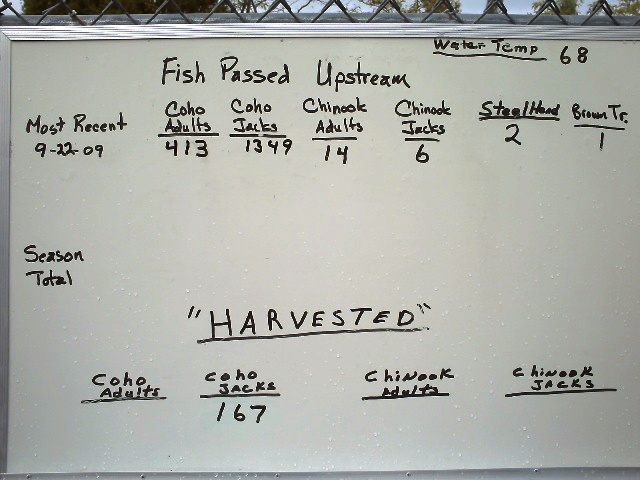 Water Temp 68
Fish Passed Upstream
Coho Coho Chinook Chinook
Most Recent Adults Jacks Adults Jacks SteelHead Brown Tr.
9-22-09 413 1349 14 6 2 1
Season
Total
"HARVESTED"
Coho Coho Chinook Chinook
Adults JACKS Adults JACKS
167